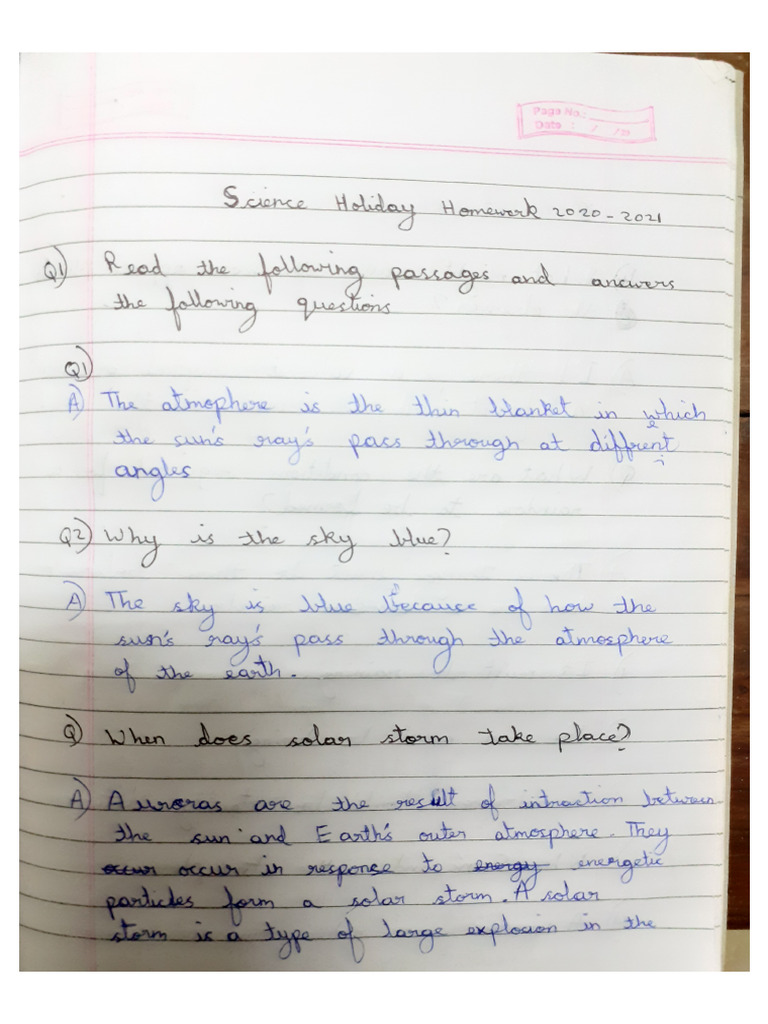 Page No.:
Date : / /
Science Holiday Homework 2020-2021
Q1) Read the following passages and answers
the following questions
Q1)
A) The atmophere is the thin blanket in which
the sun's ray's pass through at diffrent
angles
Q2) Why is the sky blue?
A) The sky is blue because of how the
sun's ray's pass through the atmosphere
of the earth.
Q) When does solar storm take place?
A) Auroras are the result of intraction between
the sun and Earth's outer atmosphere. They
occur occur in response to energy energetic
particles form a solar storm. A solar
storm is a type of large explocion in the